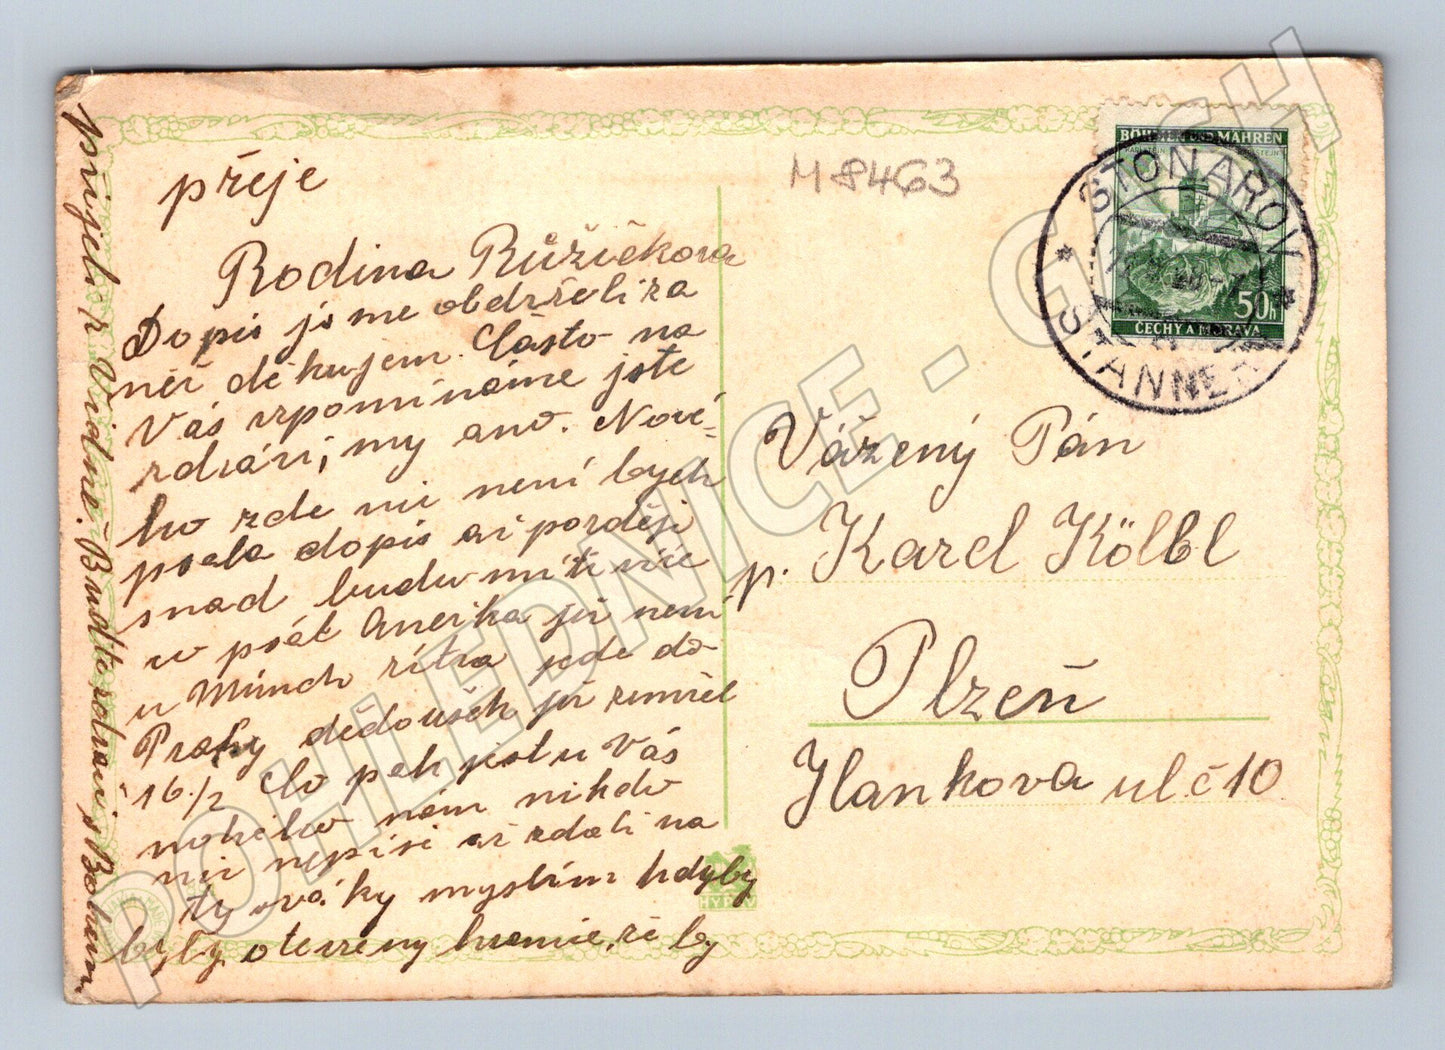 přeje
Rodina Růžičkova
Dopis jsme obdrželi za
něž děkujem. Často na
Vás vzpomínáme jste
zdrávi, my ano. Nové-
ho zde nic není bych
psala dopis až pozděj
snad budu míti více
psát Anerka již není
u Münch zítra jede do
Prahy dědoušek již zemřel
16./2 Co pak jest u Vás
nového nám nikdo
nic nepíše až zdali na
ty myslím kdyby
byly otevřeny hranice, že by
přijeli z Vídně. Buďte zdrávi s Bohem
M 8463
BÖHMEN UND MÄHREN
50h
ČECHY A MORAVA
STONAROV
STANNERN
Vážený Pán
p. Karel Kölbl
Plzeň
Hankova ul č 10
HYPO
POHLEDNICE - CZ.CH